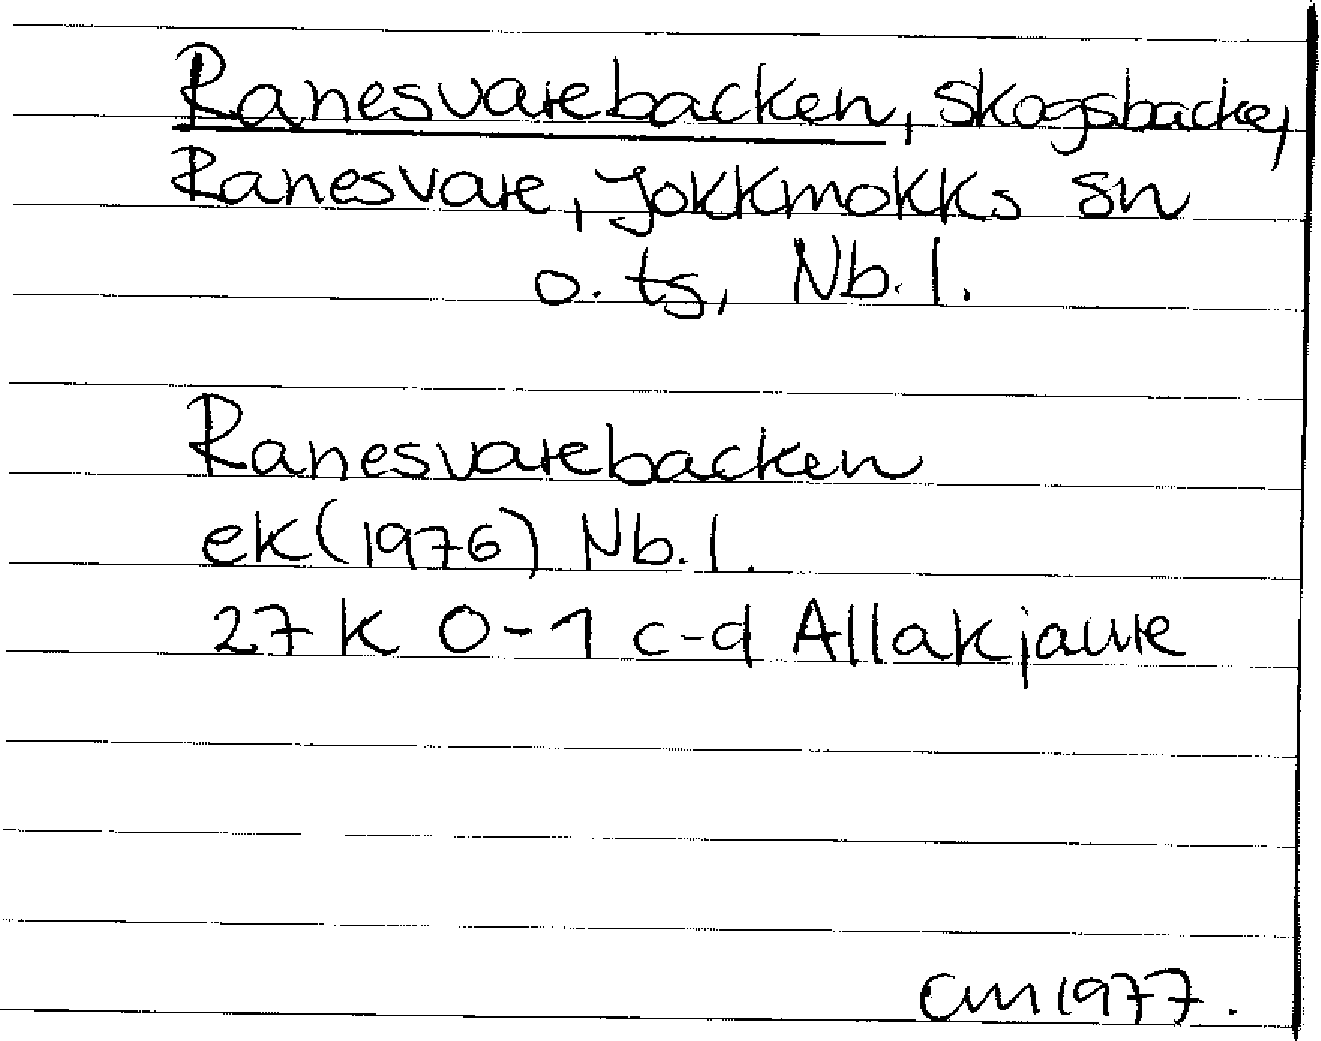 Ranesvarebacken, skogsbacke,
Ranesvare, Jokkmokks sn
o. ts, Nb. l.
Ranesvarebacken
ek (1976) Nb. l.
27 K 0-1 c-d Allakjaure
CM 1977.